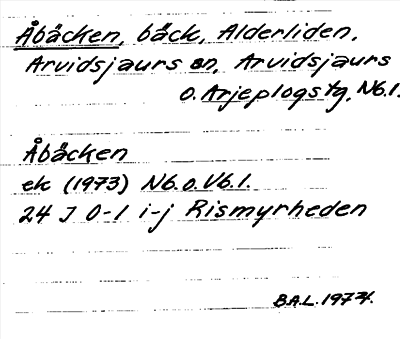 Åbäcken, bäck, Alderliden,
Arvidsjaurs sn, Arvidsjaurs
o. Arjeplogs tg, Nb.l.
Åbäcken
ek (1973) Nb. o. Vb. l.
24 J 0-1 i-j Rismyrheden
B.A.L. 1974.